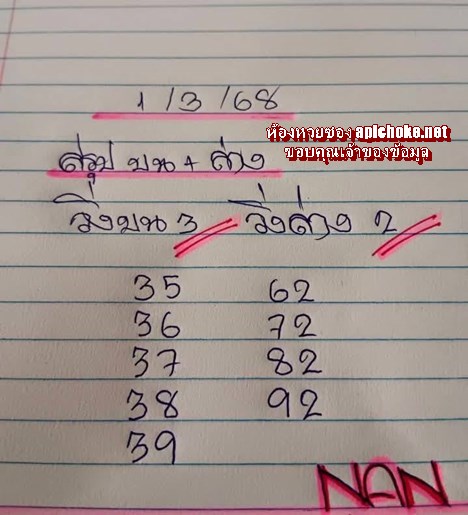 1/3/68
ห้องหวยของ apichoke.net
ขอบคุณเจ้าของข้อมูล
สรุป บน + ล่าง
วิ่งบน 3 วิ่งล่าง 2
35 62
36 72
37 82
38 92
39
NAN